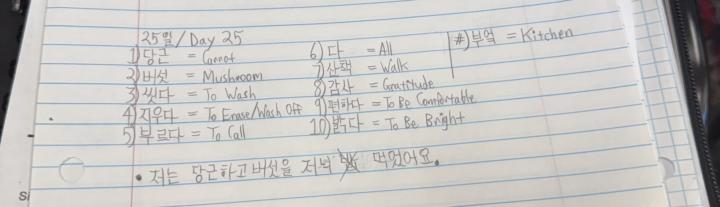 25일/Day 25
1) 당근 = Carrot
2) 버섯 = Mushroom
3) 씻다 = To Wash
4) 지우다 = To Erase/Wash Off
5) 부르다 = To Call
6) 다 = All
7) 산책 = Walk
8) 감사 = Gratitude
9) 편하다 = To Be Comfortable
10) 밝다 = To Be Bright
#) 부엌 = Kitchen
• 저는 당근하고 버섯을 저녁 먹었어요.
Si